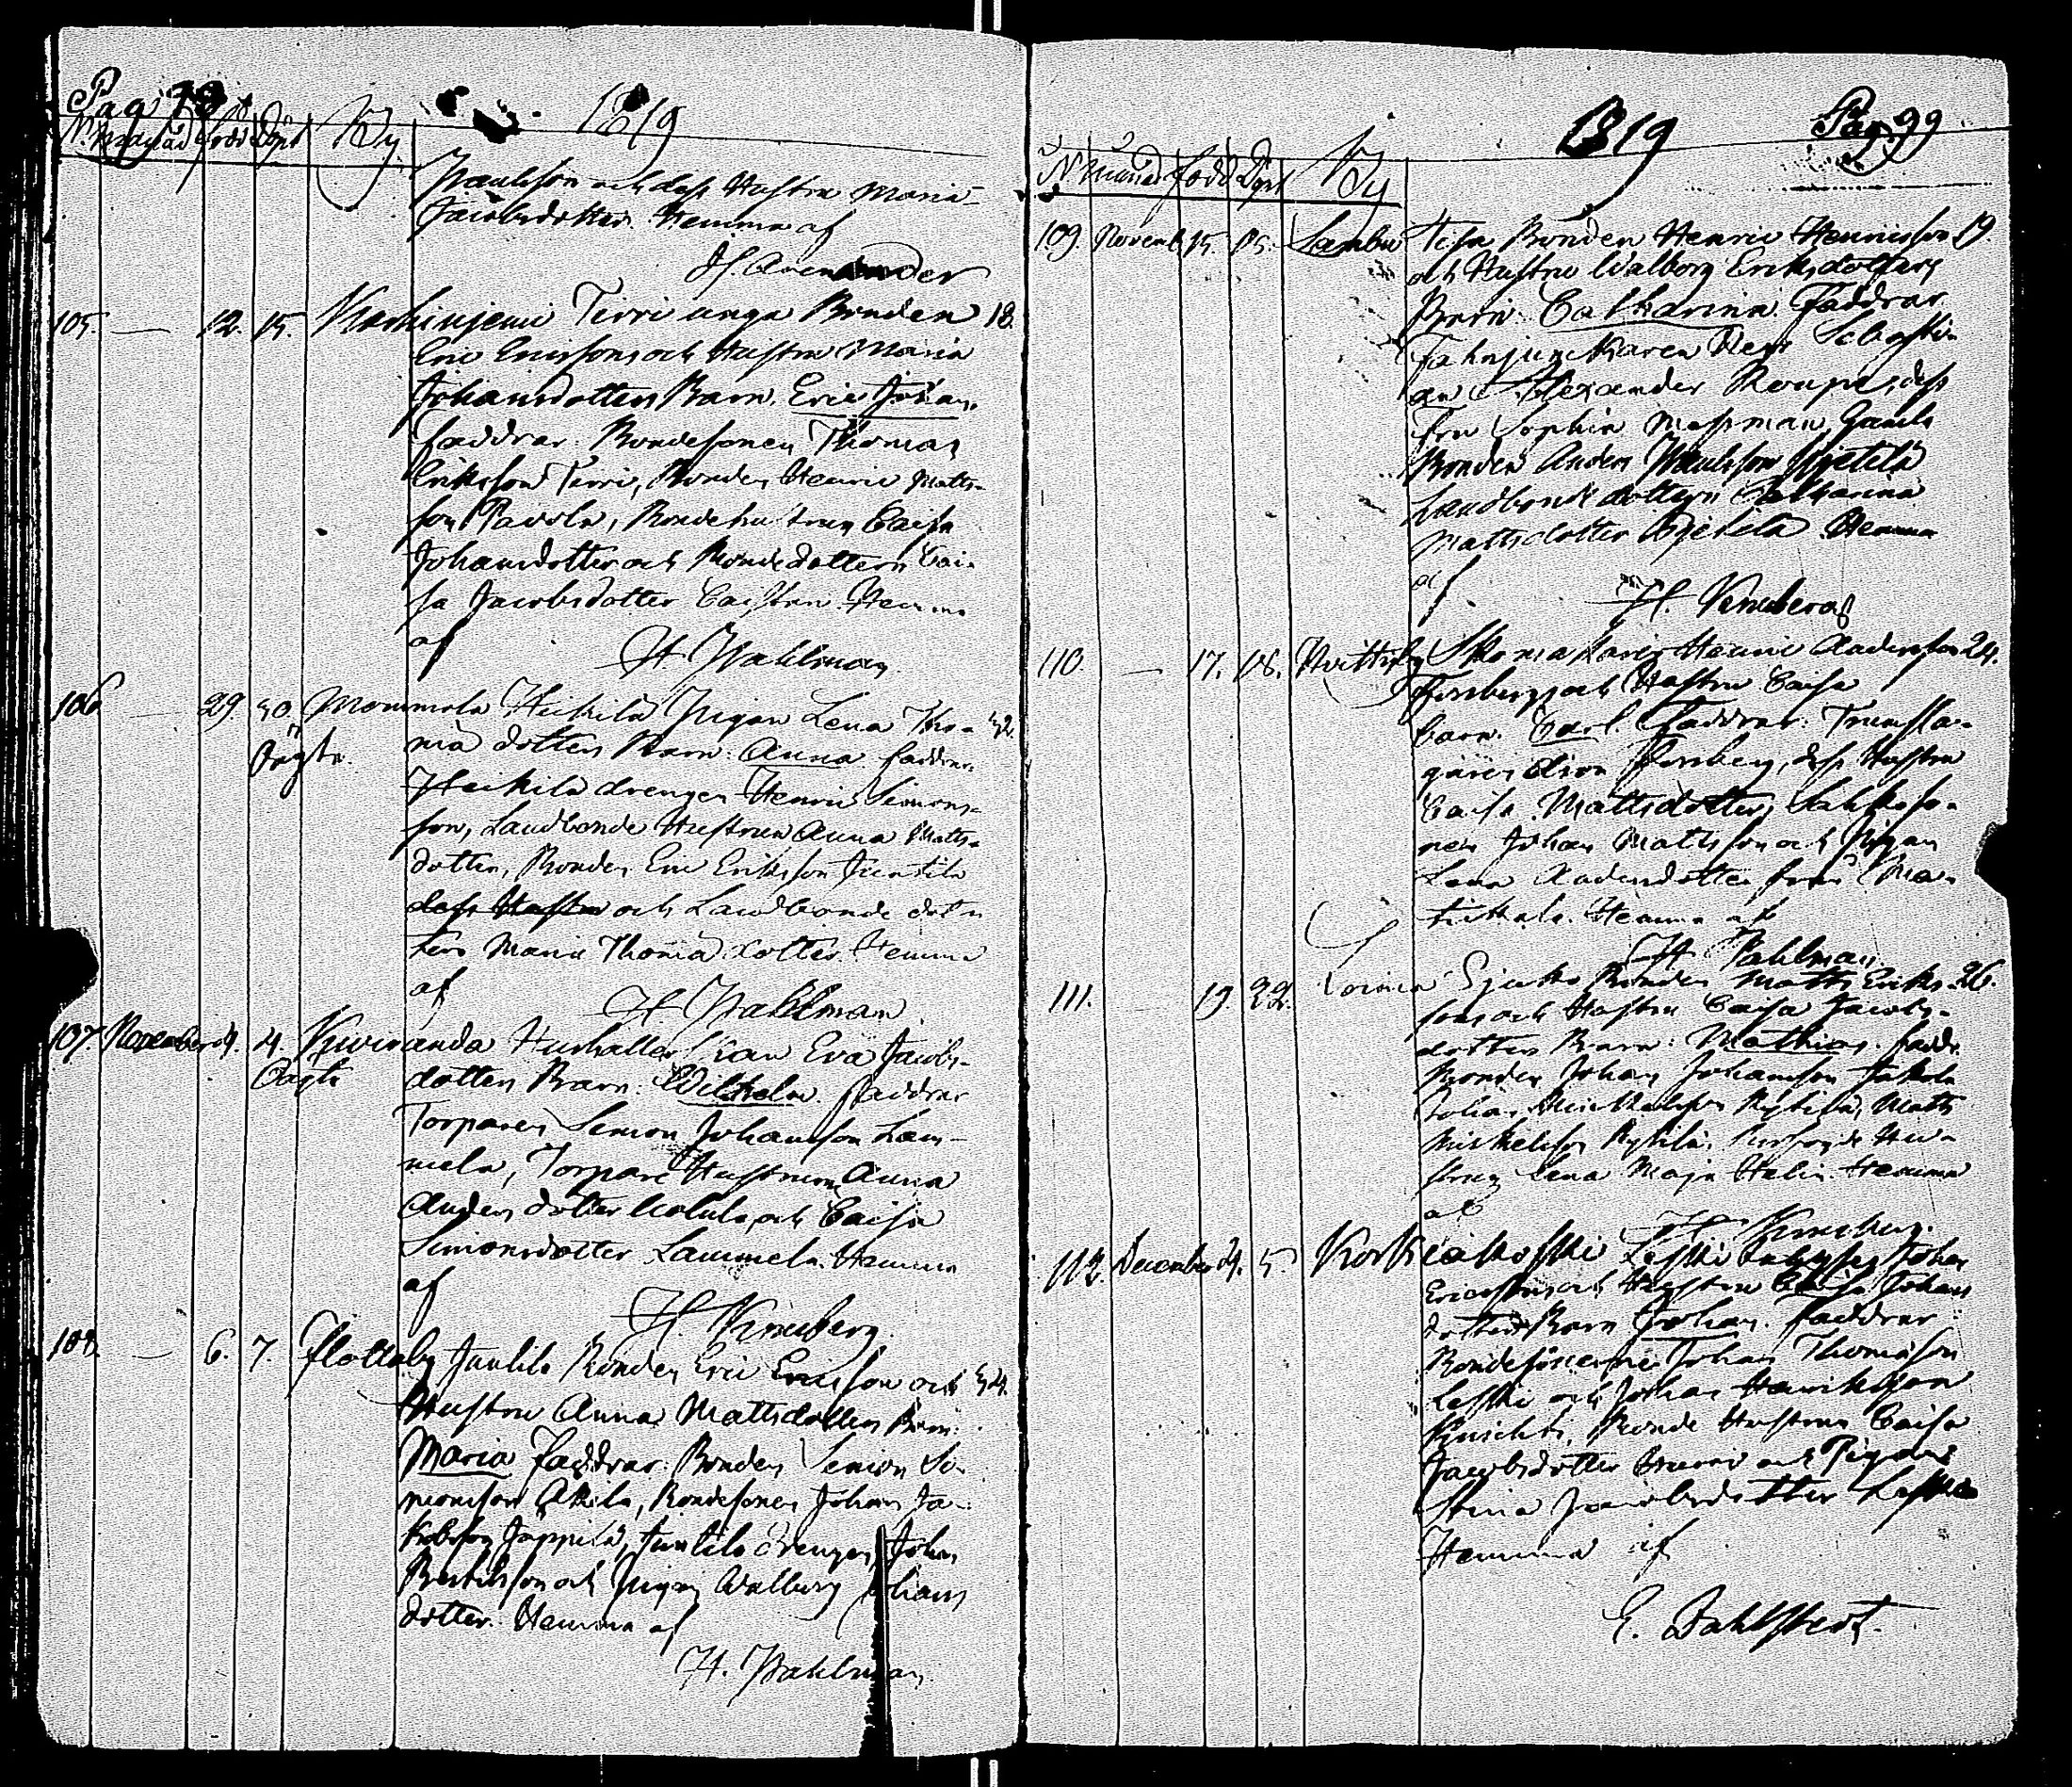 Pag 98
1819
N. Månad Född Döpt By
Paulsson och dess Hustru Maria
Jacobsdotter. Hemma af
105. — 12. 15. Karhinjemi Tirri unga Bonden 18.
Eric Ericssons och Hustru Maria
Johansdotters Barn. Eric Johan.
Faddrar: Bondesonen Thomas
Eriksson Tirri, Bonden Henric Matts-
son Pavola, Bondehustrun Caisa
Johansdotter och Bondedottern Cai-
sa Jacobsdotter Hemma
af
H Wahlman
106 — 29. 30 Mommola Heikilä Pigan Lena Tho- 32.
Oägta. ma dotters Barn: Anna faddrar
Heikilä drengen Henric Simons-
son, Landbonde Hustrun Anna Matts-
dotter, Bonden Eric Eriksson Juntila
dess Hustru och Landbonde dot-
tern Maria Thomadotter. Hemma
af
H Wahlman
107. November 4. 4. Kiviranda Hushållerskan Eva Jacobs-
Oägta dotters Barn: Wilhelm. faddrar
Torparen Simon Johansson Lam-
mela, Torpare Hustrun Anna
Andersdotter och Caisa
Simonsdotter Lammela. Hemma
af
H. Kinnberg.
108. — 6. 7. Flottsby Juntila Bonden Eric Ericsson och 34.
Hustru Anna Mattsdotters Barn:
Maria Faddrar: Bonden Simon Si-
monsson Akila, Bondesonen Johan Ja-
kobsson Jäppilä, Juntila drengen Johan
och Pigan Walborg Johans
dotter. Hemma af
H. Wahlman
1819 Pag 99
N Månad Född Döpt By
109. Novemb. 15. 15. Sambu Bonden Henric Henricsson 19.
och Hustru Walborg Eriksdotters
Barn: Catharina. Faddrar
Fahnjunkaren Sebasti-
an Alexander dess
Fru Sophia Gamla
Bonden Anders Paulsson
Landbonde dottern Catharina
Mattsdotter Hemma
af
H. Kinnberg
110. — 17. 18. Hvittisby Henric Andersson 24.
Forsbergs och Hustru Caisa
barn. Carl. Faddrar: Trumsla-
garen Forsberg, dess Hustru
Caisa Mattsdotter,
nen Johan Mattsson och Pigan
Lena Andersdotter från Ma-
Hemma af
H Wahlman
111. 19. 22. Loima Bonden Matts Eriks- 26.
sons och Hustru Caisa Jacobs-
dotters Barn: Mathias. faddr.
Bonden Johan Johansson
Johan Mickelsson Matts
Mickelsson Hu-
strun Lena Maja Helin. Hemma
af
H Kinnberg.
112. December 4. 5. Korkiakoski Leski Johan
Ericssons och Hustru Caisa Johans
dotters Barn Johan. Faddrar:
Bondesönerne Johan Thomasson
Leski och Johan Henriksson
Bonde Hustrun Caisa
Jacobsdotter och Pigan
Stina Jacobsdotter Leski
Hemma af
E. Dahlstedt.